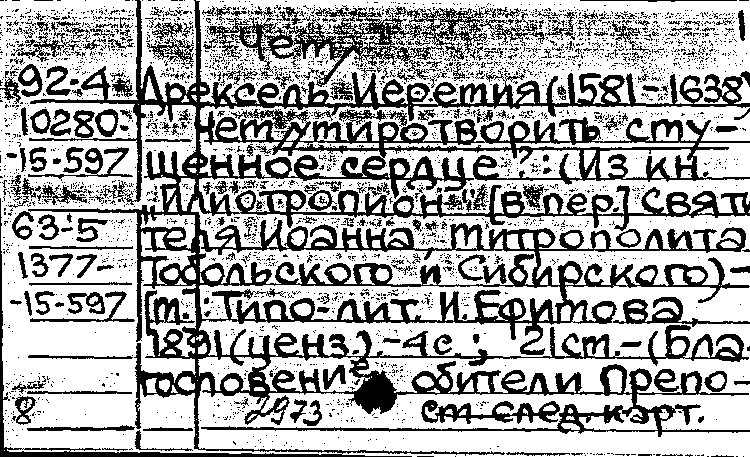 Чет
92-4 Дрексель, Иеремия (1581-1638)
10280- Чем умиротворить сму-
-15-597 щенное сердце?: (Из кн.
"Илиотропион" [в пер.] Святи
63-5 теля Иоанна, митрополита
1377- Тобольского и Сибирского).-
-15-597 [м.]: Типо-лит. И. Ефимова,
1891 (ценз.).-4с.; 21см.-(Бла-
гословение обители Препо-
8 2973 см след. карт.